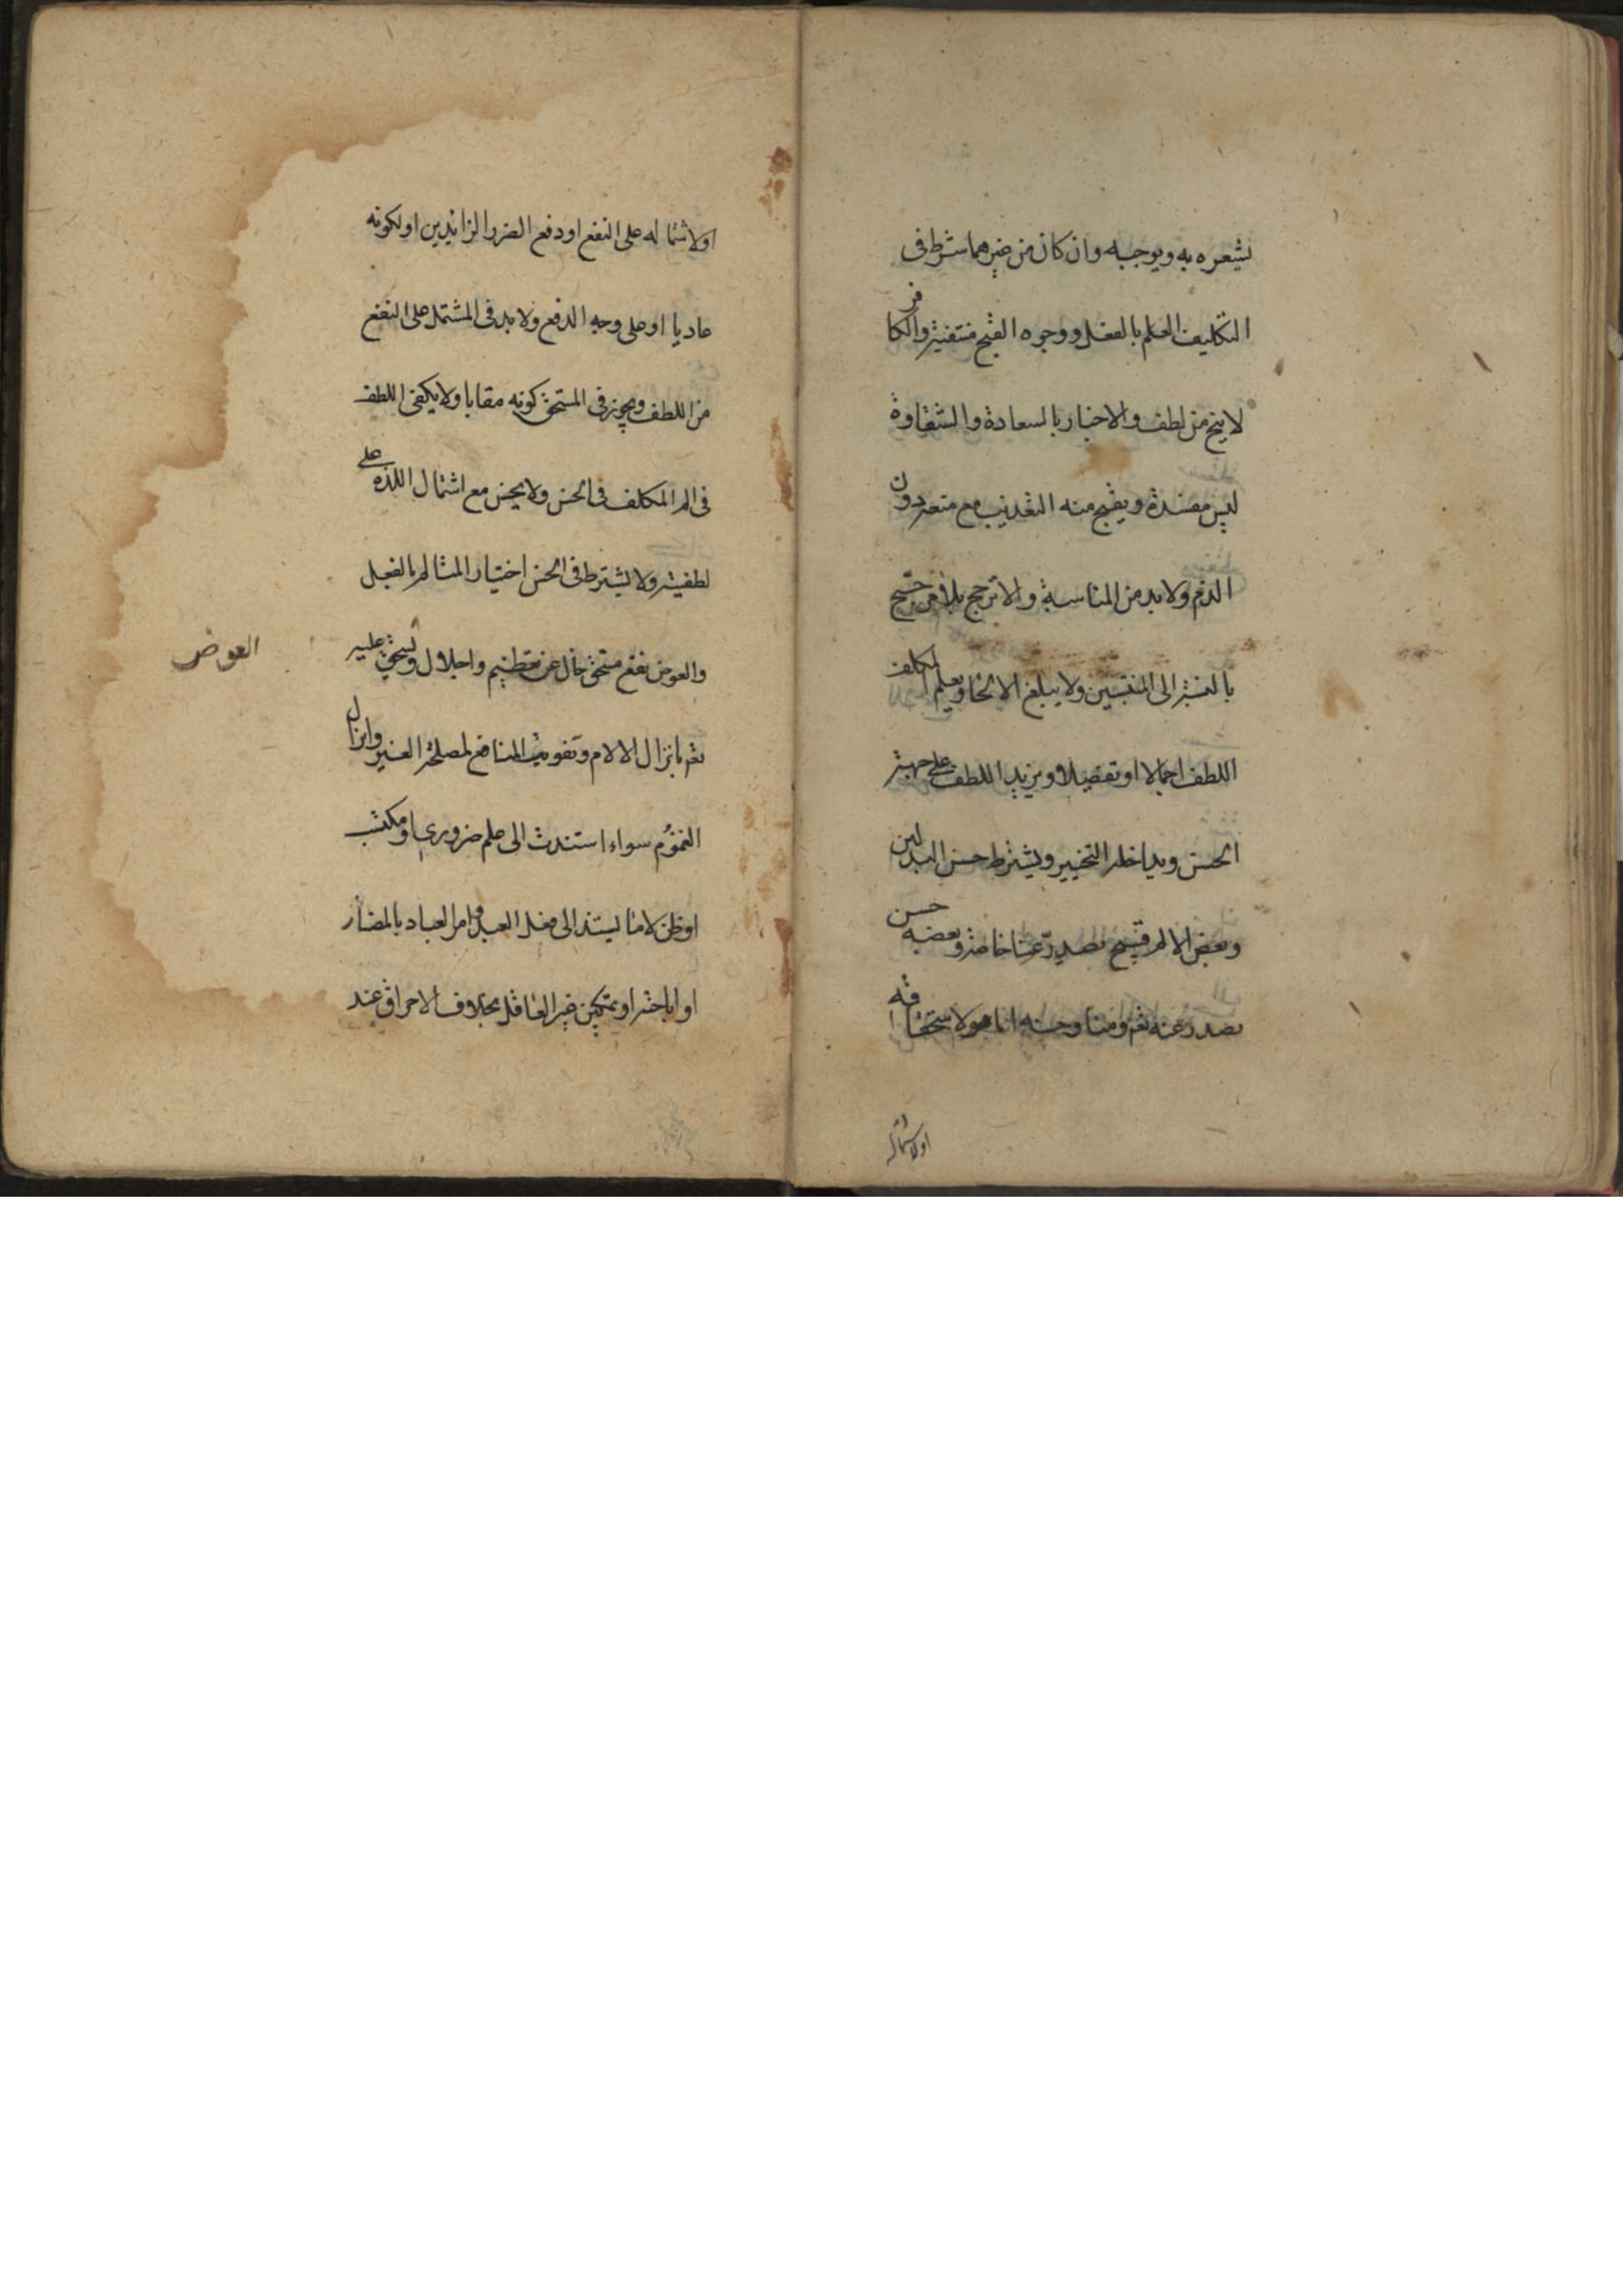 يشعره به ويوجبه وان كان من غيرهما شرط في
التكليف العلم بالفعل ووجوه القبح منتفية والكافر
لا يخ من لطف والاخبار بالسعادة والشقاوة
ليس مفسدة ويقبح منه التعذيب مع منعه دون
الذم ولا بد من المناسبة والا ترجح بلا مرجح
بالنسبة الى المنتسبين ولا يبلغ الالجا ويعلم المكلف
اللطف اجمالا او تفصيلا ويزيد اللطف على جهة
الحسن ويداخله التخيير ويشترط حسن البدلين
وبعض الالم قبيح يصدر عنا خاصة وبعضه حسن
يصدر عنه تع ومنا وحسنه اما هو لاستحقاقه
اولاشتماله
اولاشتماله على النفع او دفع الضرر الزايدين او لكونه
عاديا او على وجه الدفع ولا بد في المشتمل على النفع
من اللطف ويجوز في المستحق كونه عقابا ولا يكفى اللطف
في الم المكلف في الحسن ولا يحسن مع اشتمال اللذة على
لطفيته ولا يشترط في الحسن اختيار المتالم بالفعل
والعوض نفع مستحق خال عن تعظيم واجلال ويستحق عليه
العوض
تع بانزال الالام وتفويت المنافع لمصلحة الغير وانزال
الغموم سواء استندت الى علم ضروري او مكتسب
او ظن لا ما يستند الى فعل العبد وامر العباد بالمضار
او اباحته او تمكين غير العاقل بخلاف الاحراق عند